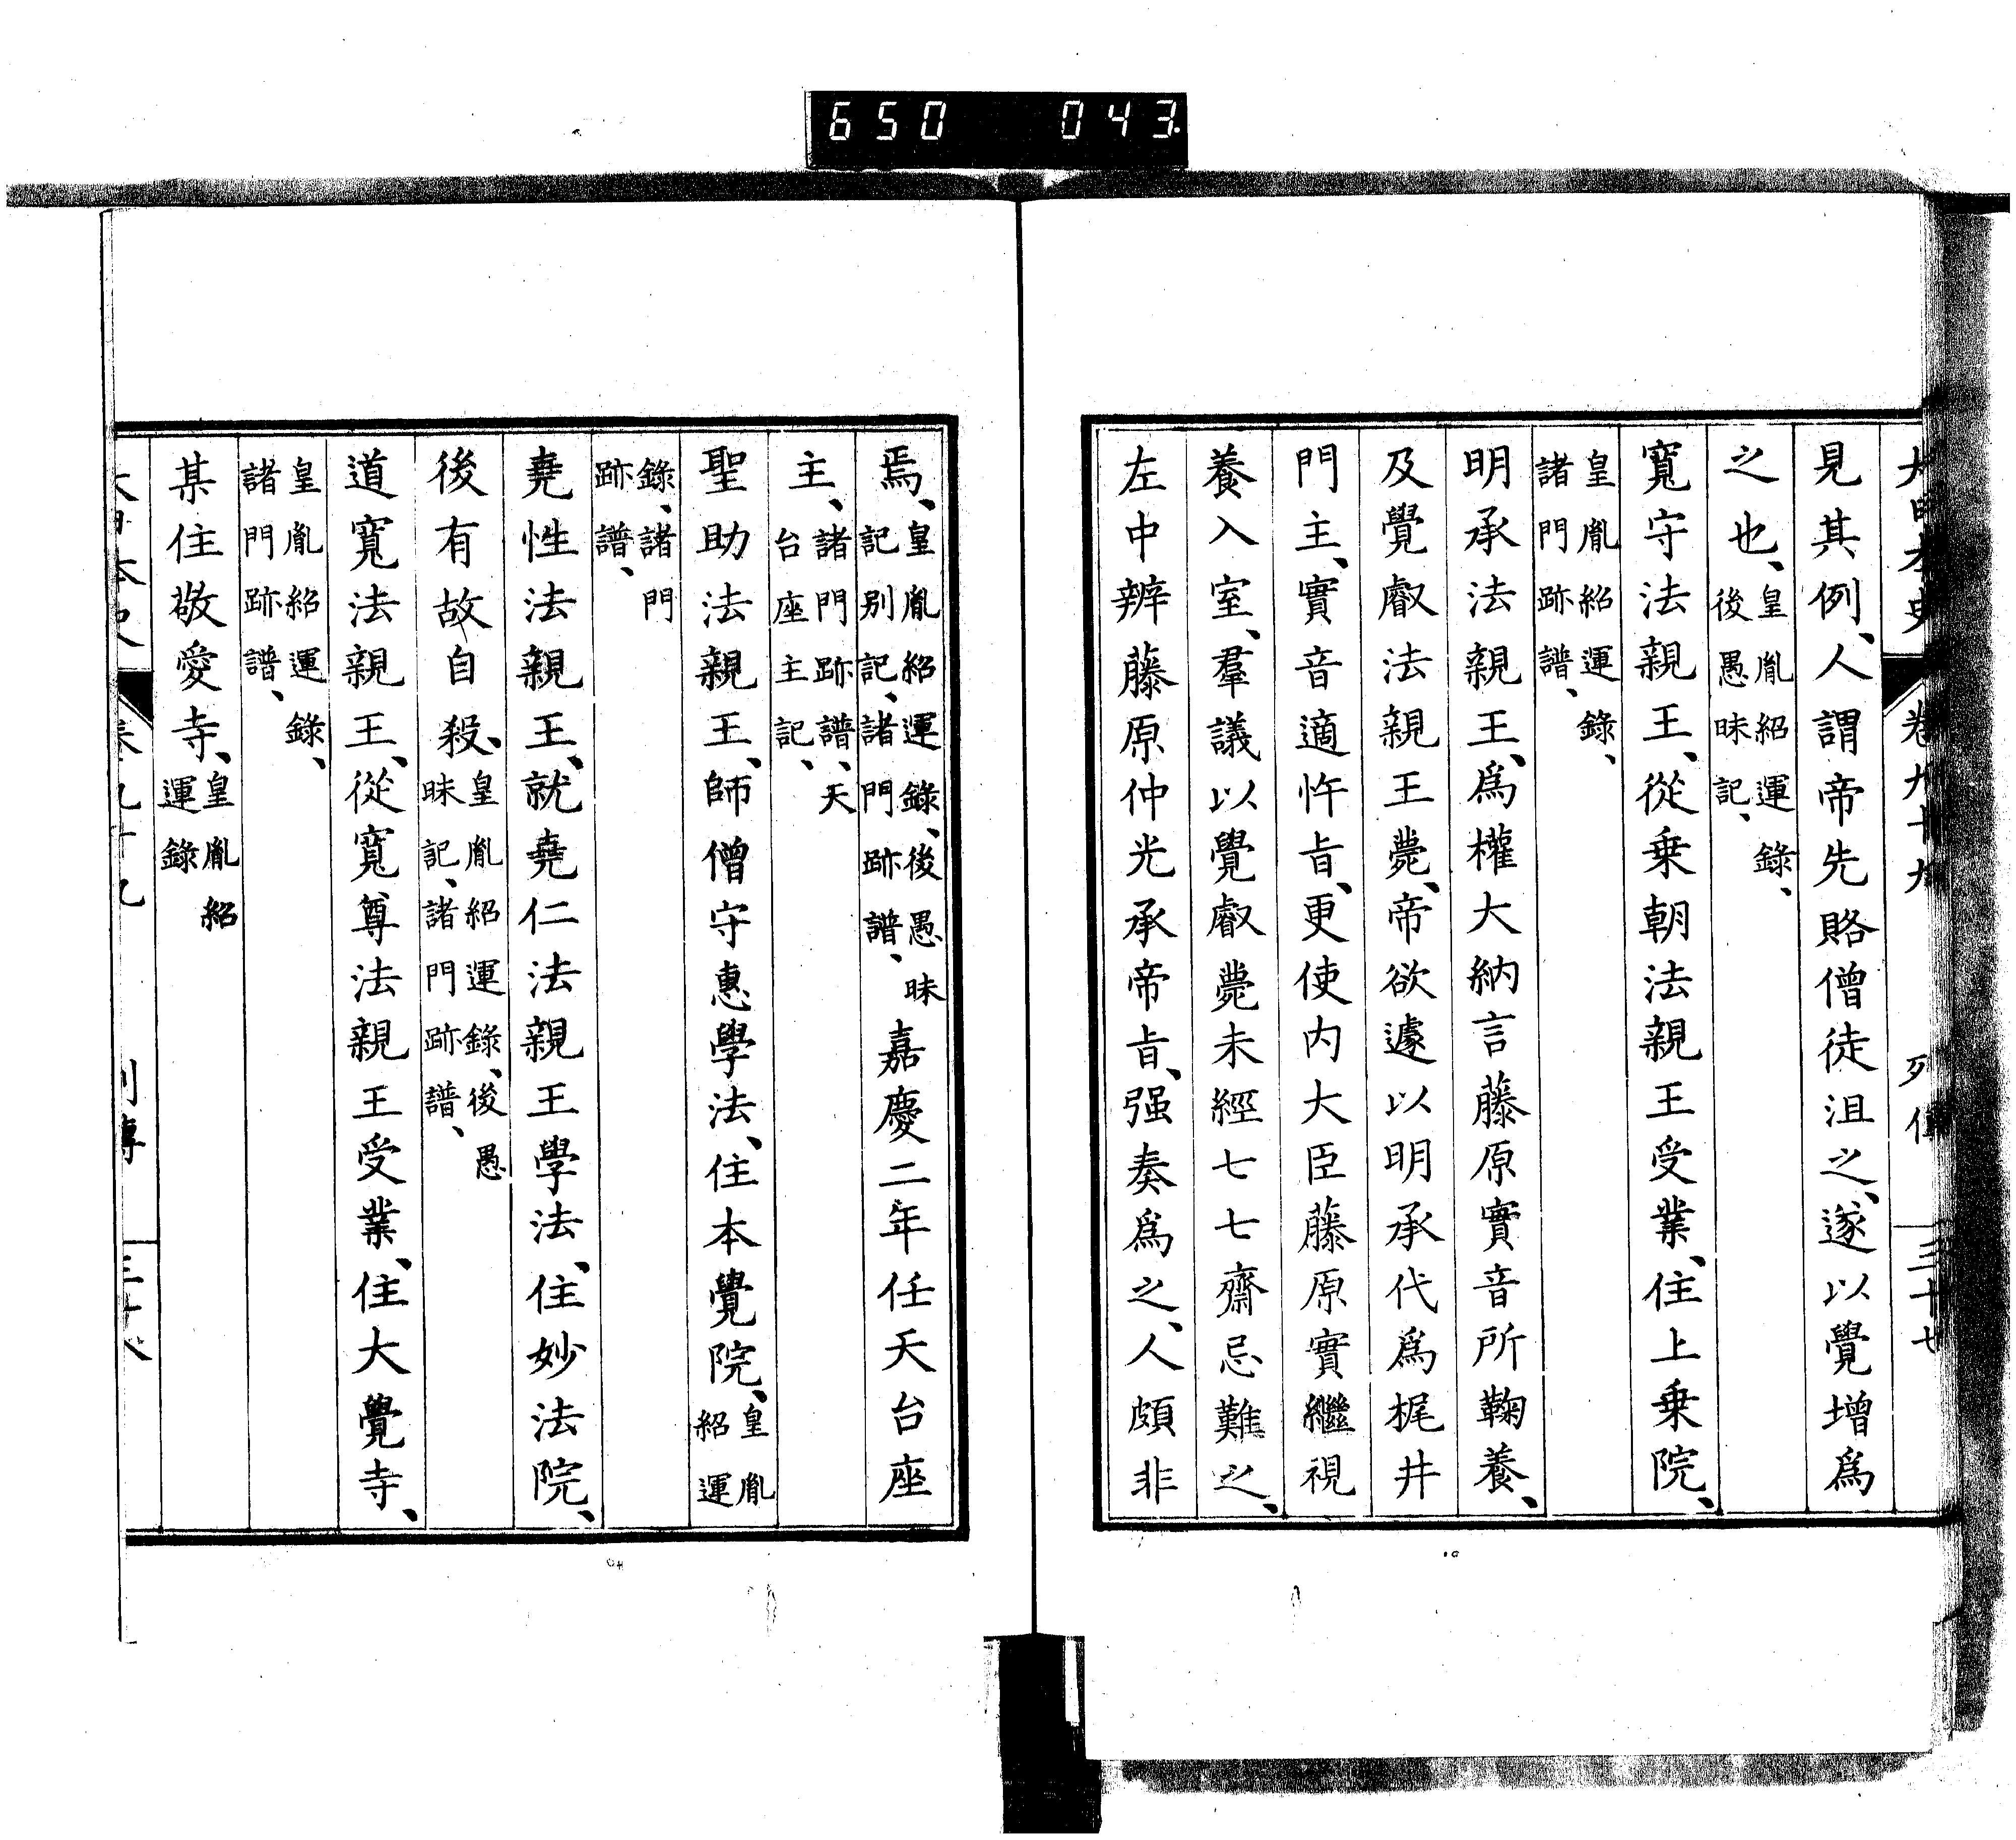 650 043
大日本史 卷九十九 列傳 三十七
見其例、人謂帝先賂僧徒沮之、遂以覺增爲
之也、皇胤紹運錄、後愚昧記、
寬守法親王、從乗朝法親王受業、住上乗院、
皇胤紹運錄、諸門跡譜、
明承法親王、爲權大納言藤原實音所鞠養、
及覺叡法親王薨、帝欲遽以明承代爲梶井
門主、實音適忤旨、更使内大臣藤原實繼視
養入室、羣議以覺叡薨未經七七齋忌難之、
左中辨藤原仲光承帝旨、强奏爲之、人頗非
焉、皇胤紹運錄、後愚昧記別記、諸門跡譜、嘉慶二年任天台座
主、諸門跡譜、天台座主記、
聖助法親王、師僧守惠學法、住本覺院、皇胤紹運
錄、諸門跡譜、
堯性法親王、就堯仁法親王學法、住妙法院、
後有故自殺、皇胤紹運錄、後愚昧記、諸門跡譜、
道寬法親王、從寬尊法親王受業、住大覺寺、
皇胤紹運錄、諸門跡譜、
某住敬愛寺、皇胤紹運錄
大日本史 卷九十九 列傳 三十八